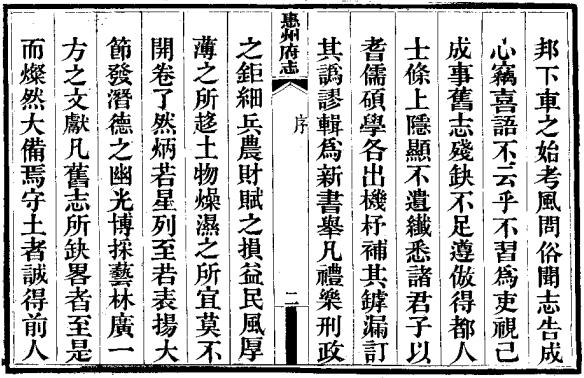 邦下車之始考風問俗聞志告成
心竊喜語不云乎不習爲吏視已
成事舊志殘缺不足遵倣得都人
士條上隱顯不遺纖悉諸君子以
耆儒碩學各出機杼補其罅漏訂
其譌謬輯爲新書舉凡禮樂刑政
惠州府志
序
二
之鉅細兵農財賦之損益民風厚
薄之所趍土物燥濕之所宜莫不
開卷了然炳若星列至若表揚大
節發潛德之幽光博採藝林廣一
方之文獻凡舊志所缺畧者至是
而燦然大備焉守土者誠得前人